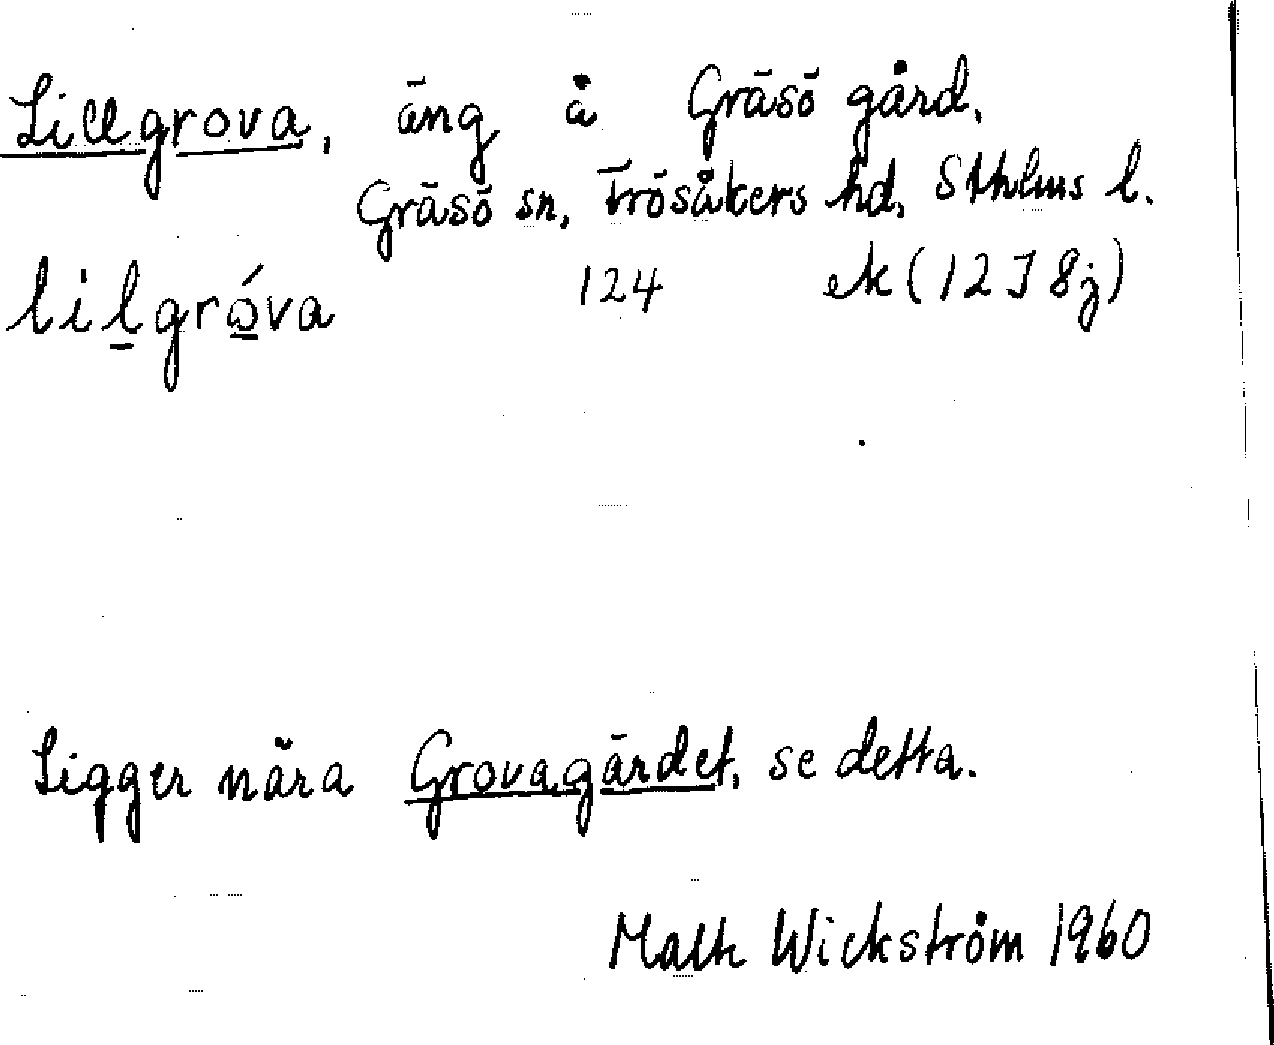 Lillgrova, äng å Gräsö gård,
Gräsö sn, Frösåkers hd, Sthlms l.
lilgróva 124 ek (12 I 8j)
Ligger nära Grovagärdet, se detta.
Wickström 1960